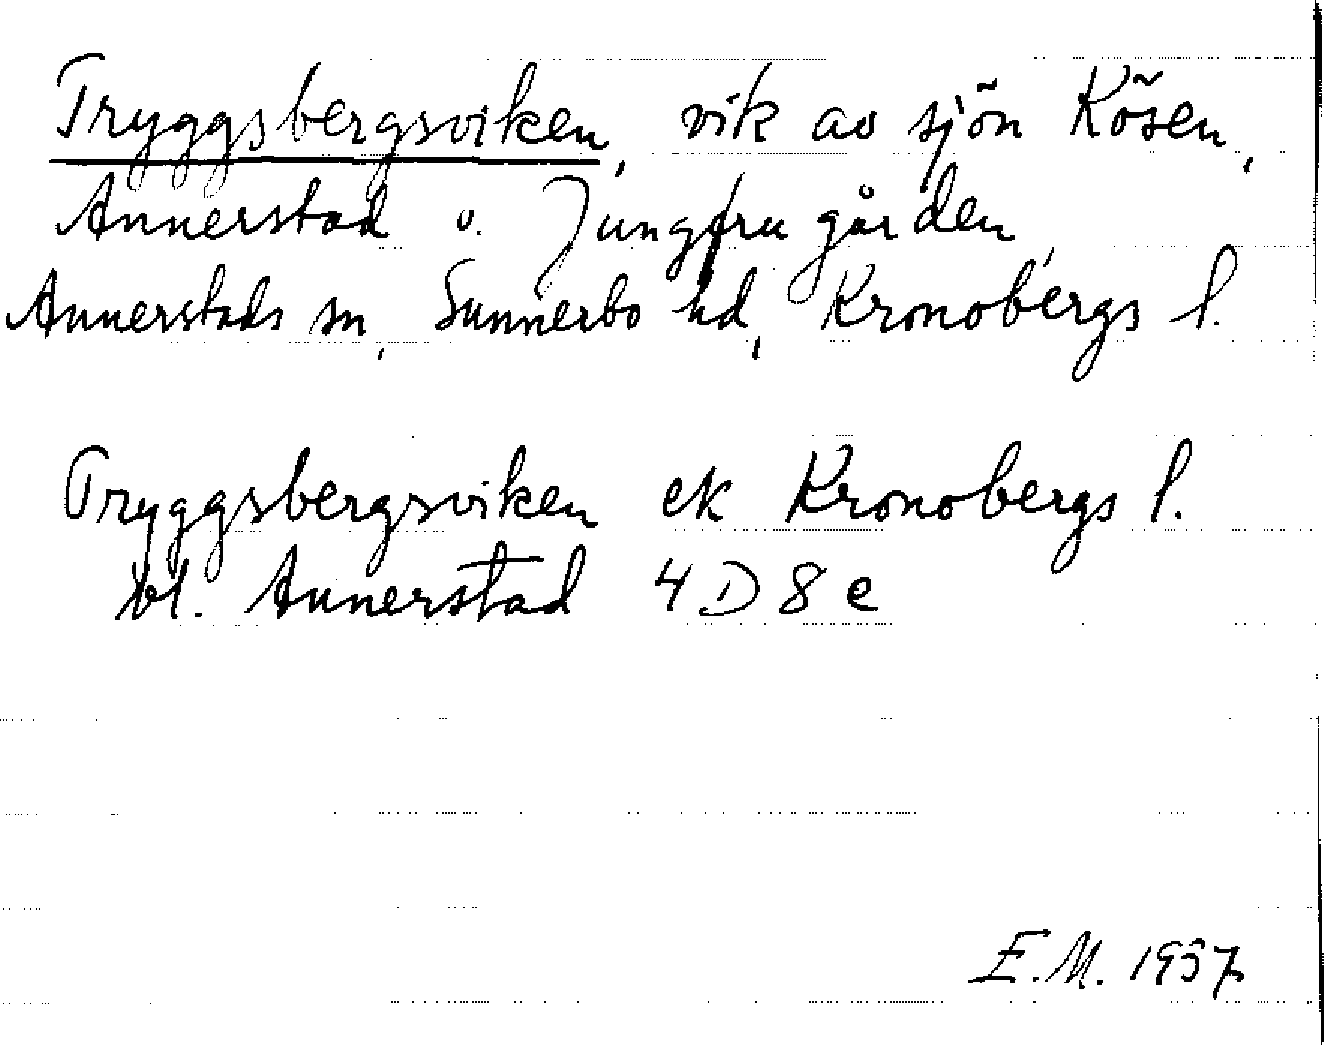 Tryggsbergsviken, vik av sjön Kösen,
Annerstad o. Jungfrugården,
Annerstads sn, Sunnerbo hd, Kronobergs l.
Tryggsbergsviken ek Kronobergs l.
bl. Annerstad 4D8e
E.M. 1957